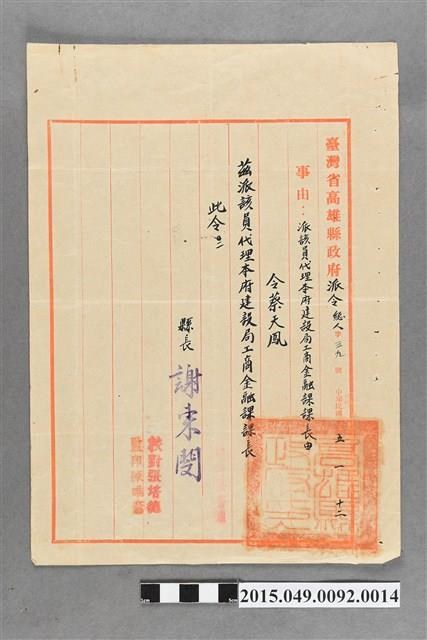 臺灣省高雄縣政府派令 總人字三九號 中華民國 五 一 十二
事由：派該員代理本府建設局工商金融課課長由
令蔡天鳳
茲派該員代理本府建設局工商金融課課長
此令
縣長 謝東閔
校對張培德
高雄縣政府
2015.049.0092.0014